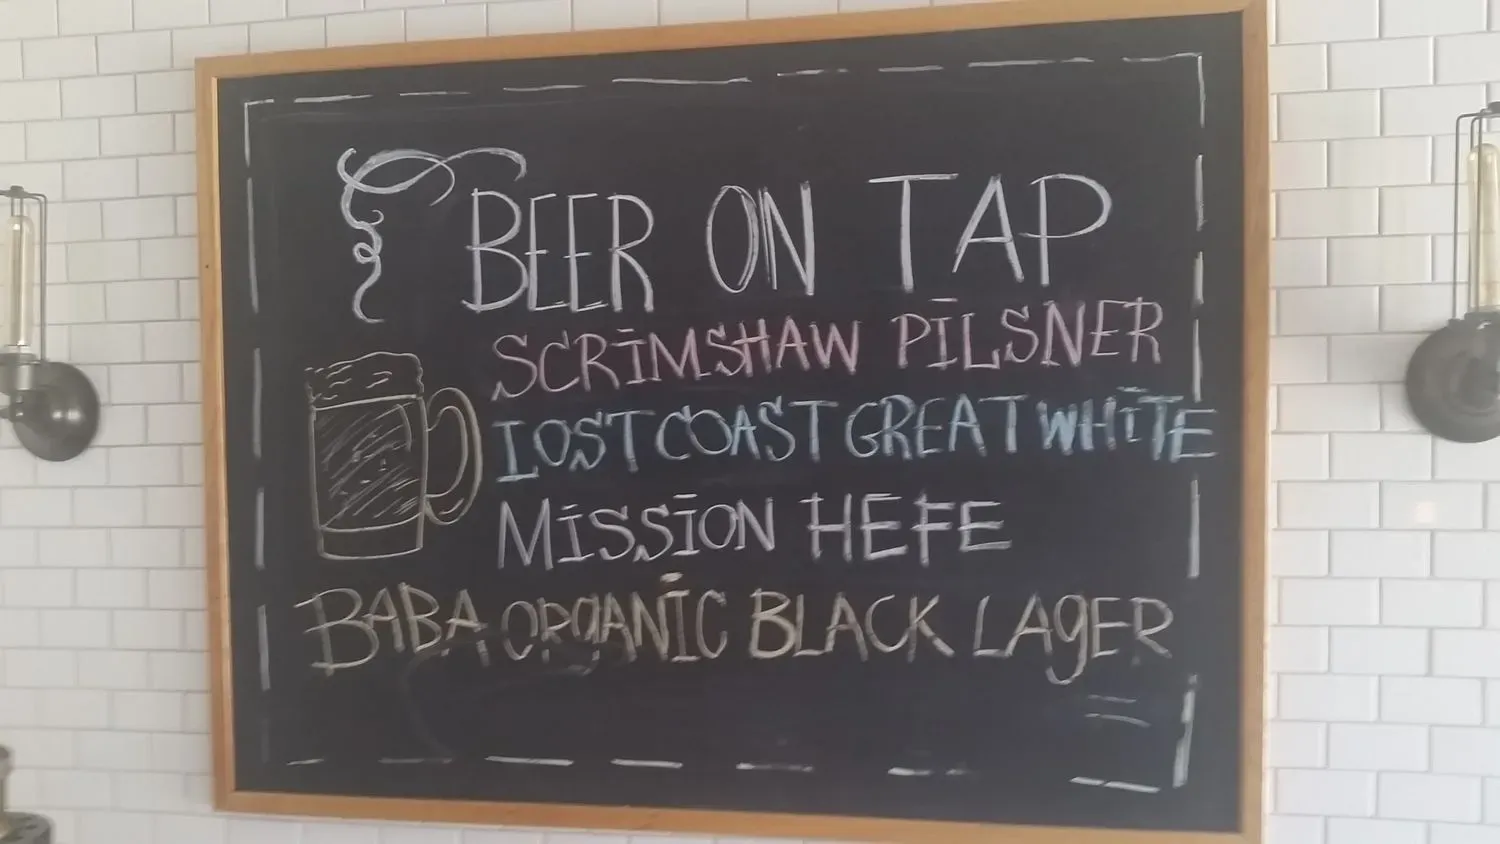 BEER ON TAP
SCRIMSHAW PILSNER
LOST COAST GREAT WHITE
MISSION HEFE
BABA ORGANIC BLACK LAGER